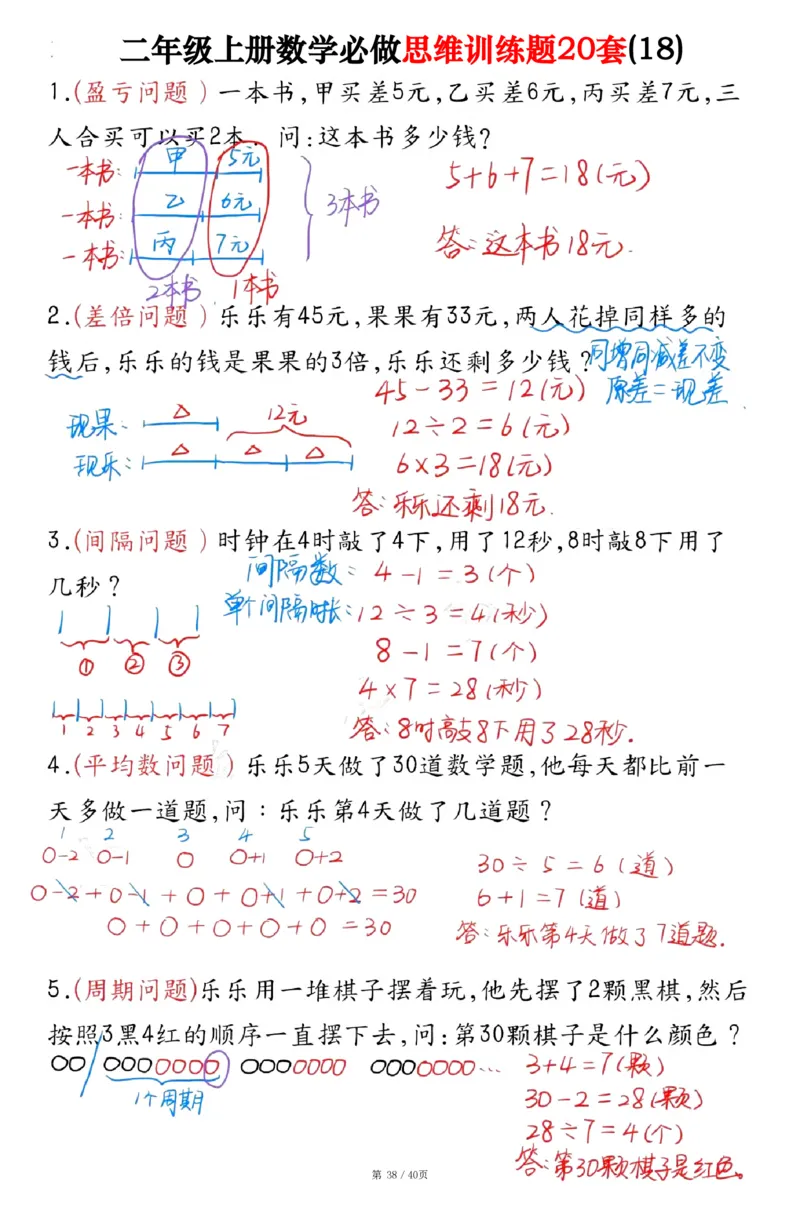 二年级上册数学必做思维训练题20套(18)
1.(盈亏问题）一本书,甲买差5元,乙买差6元,丙买差7元,三
人合买可以买2本. 问:这本书多少钱?
一本书: 甲 5元
一本书: 乙 6元
一本书: 丙 7元
3本书
2本书 1本书
5+6+7=18(元)
答:这本书18元.
2.(差倍问题）乐乐有45元,果果有33元,两人花掉同样多的
钱后,乐乐的钱是果果的3倍,乐乐还剩多少钱?
同增同减差不变
原差=现差
现果: △ 12元
现乐: △ △ △
45-33=12(元)
12÷2=6(元)
6×3=18(元)
答:乐乐还剩18元.
3.(间隔问题）时钟在4时敲了4下,用了12秒,8时敲8下用了
几秒?
间隔数: 4-1=3(个)
单个间隔时长:12÷3=4(秒)
8-1=7(个)
4×7=28(秒)
答:8时敲8下用了28秒.
① ② ③
1 2 3 4 5 6 7
4.(平均数问题）乐乐5天做了30道数学题,他每天都比前一
天多做一道题,问：乐乐第4天做了几道题?
1 2 3 4 5
○-2 ○-1 ○ ○+1 ○+2
○-2+○-1+○+○+1+○+2=30
○+○+○+○+○=30
30÷5=6(道)
6+1=7(道)
答:乐乐第4天做了7道题.
5.(周期问题)乐乐用一堆棋子摆着玩,他先摆了2颗黑棋,然后
按照3黑4红的顺序一直摆下去,问:第30颗棋子是什么颜色?
○○/○○○○○○○ ○○○○○○○ ○○○○○○○...
1个周期
3+4=7(颗)
30-2=28(颗)
28÷7=4(个)
答:第30颗棋子是红色。
第 38 / 40页